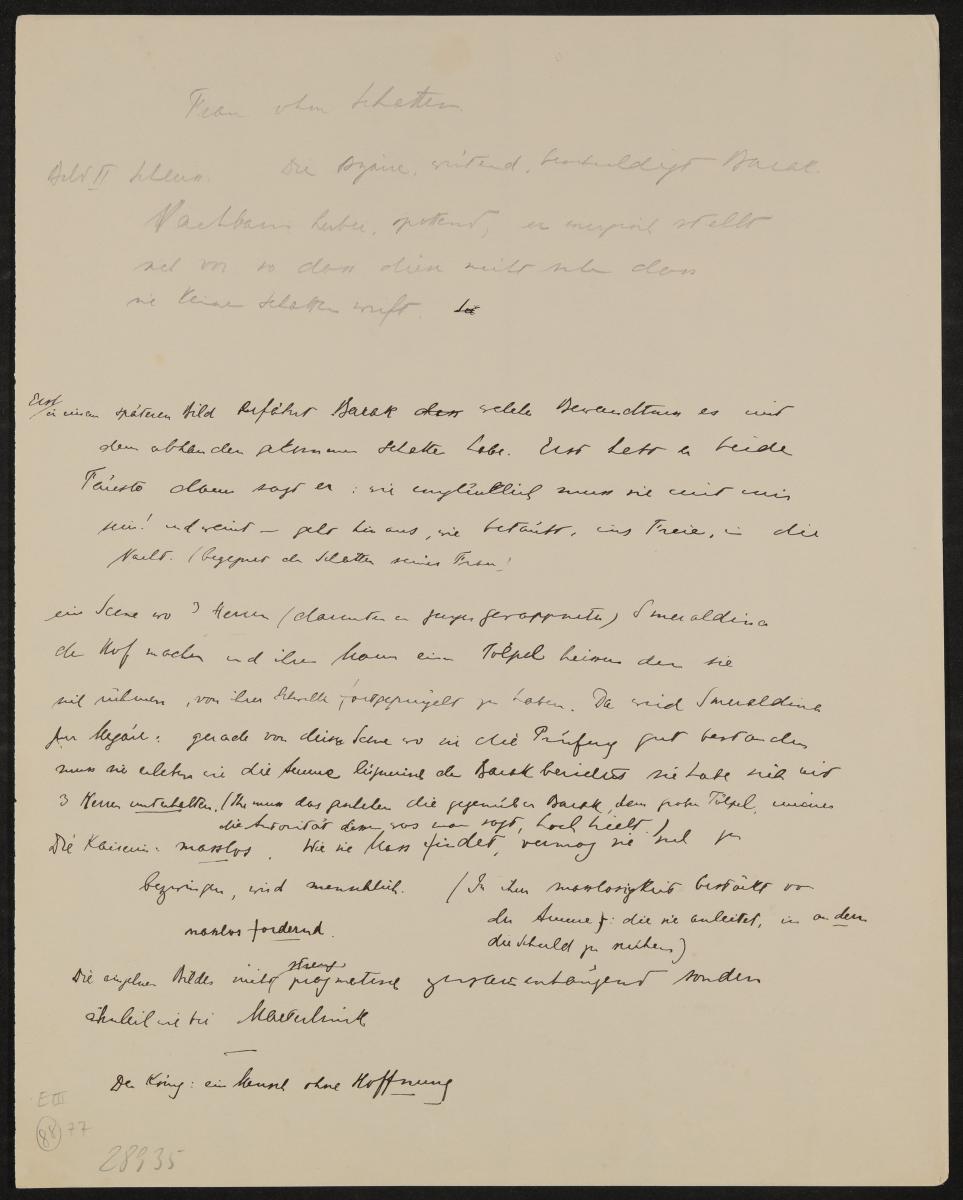 Frau ohne Schatten.
Bild II Schluss. Die Megäre, wütend, beschuldigt Barak.
Nachbarn herbei, spottend, er stellt
sich vor so dass diese nicht sehn dass
sie keinen Schatten wirft. Sie
Erst
in einem späteren Bild erfährt Barak dass welche Bewandtnis es mit
dem abhanden gekommenen Schatten habe. Erst hebt er beide
Fäuste dann sagt er: wie unglücklich muss sie mit mir
sein! und weint – geht hinaus, wie betäubt, ins Freie, in die
Nacht. (begegnet der Schatten seiner Frau!
eine Scene wo 3 Herren (darunter ein junger Gewappneter) Smeraldina
den Hof machen und ihren Mann einen Tölpel heissen den sie
sich rühmen, von ihrer Schwelle fortgeprügelt zu haben. Da wird Smeraldina
zur Megäre: gerade von dieser Scene wo sie die Prüfung gut bestanden
muss sie erleben wie die Amme lügnerisch dem Barak berichtet sie habe sich mit
3 Herren unterhalten. (Ihr muss das geschehen die gegenüber Barak, dem großen Tölpel, immer
die Autorität dessen was man sagt, hoch hielt.)
Die Kaiserin: masslos. Wie sie Mass findet, vermag sie sich zu
bezwingen, wird menschlich. (In ihrer Masslosigkeit bestärkt von
der Amme: die sie anleitet, in andern
die Schuld zu suchen)
masslos fordernd.
strenge
Die einzelnen Bilder nicht pragmatisch zusammenhängend sondern
ähnlich wie bei Maeterlinck
—
Der König: ein Mensch ohne Hoffnung
E III
88 77
28935